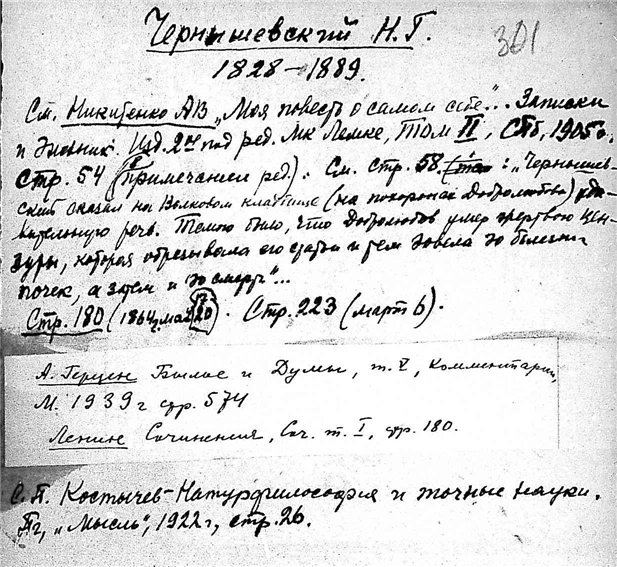 Чернышевский Н.Г.
301
1828–1889.
См. Никитенко АВ „Моя повесть о самом себе"... Записки
и дневник. Изд. 2ое под ред. Мк Лемке, Том II, СПб, 1905г.
Стр. 54 (примечание ред.). См. стр. 58. : „Чернышев-
ский сказал на Волковом кладбище (на похоронах Добролюбова) уди-
вительную речь. Темою было, что Добролюбов умер жертвою цен-
зуры, которая обрезывала его статьи и тем довела до болезни
почек, а затем и до смерти"...
Стр. 180 (1864г. мая 20). Стр. 223 (март 6).
А. Герцен Былое и Думы, т. V, комментарии,
М. 1939 г стр. 574
Ленин Сочинения, Соч. т. I, стр. 180.
С. П. Костычев–Натурфилософия и точные науки.
Пг, „Мысль", 1922 г, стр. 26.